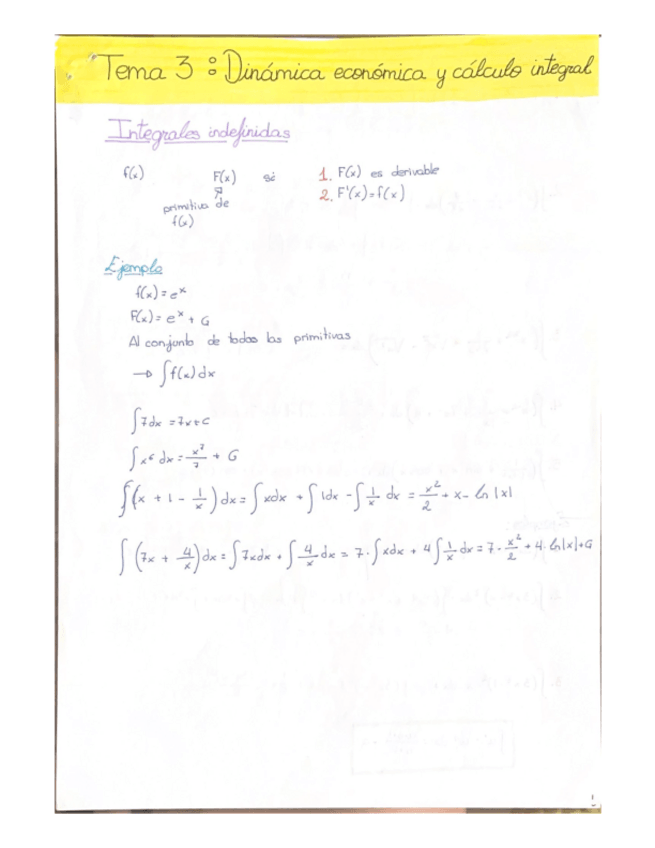 Tema 3 : Dinámica económica y cálculo integral
Integrales indefinidas
f(x) F(x) si 1. F(x) es derivable
primitiva de 2. F'(x)=f(x)
f(x)
Ejemplo
f(x) = e^x
F(x) = e^x + C
Al conjunto de todas las primitivas
→ ∫f(x)dx
∫7dx = 7x+C
∫x^6 dx = x^7/7 + C
∫(x + 1 - 1/x)dx = ∫xdx + ∫1dx - ∫1/x dx = x^2/2 + x - ln|x|
∫(7x + 4/x)dx = ∫7xdx + ∫4/x dx = 7·∫xdx + 4∫1/x dx = 7·x^2/2 + 4·ln|x|+C